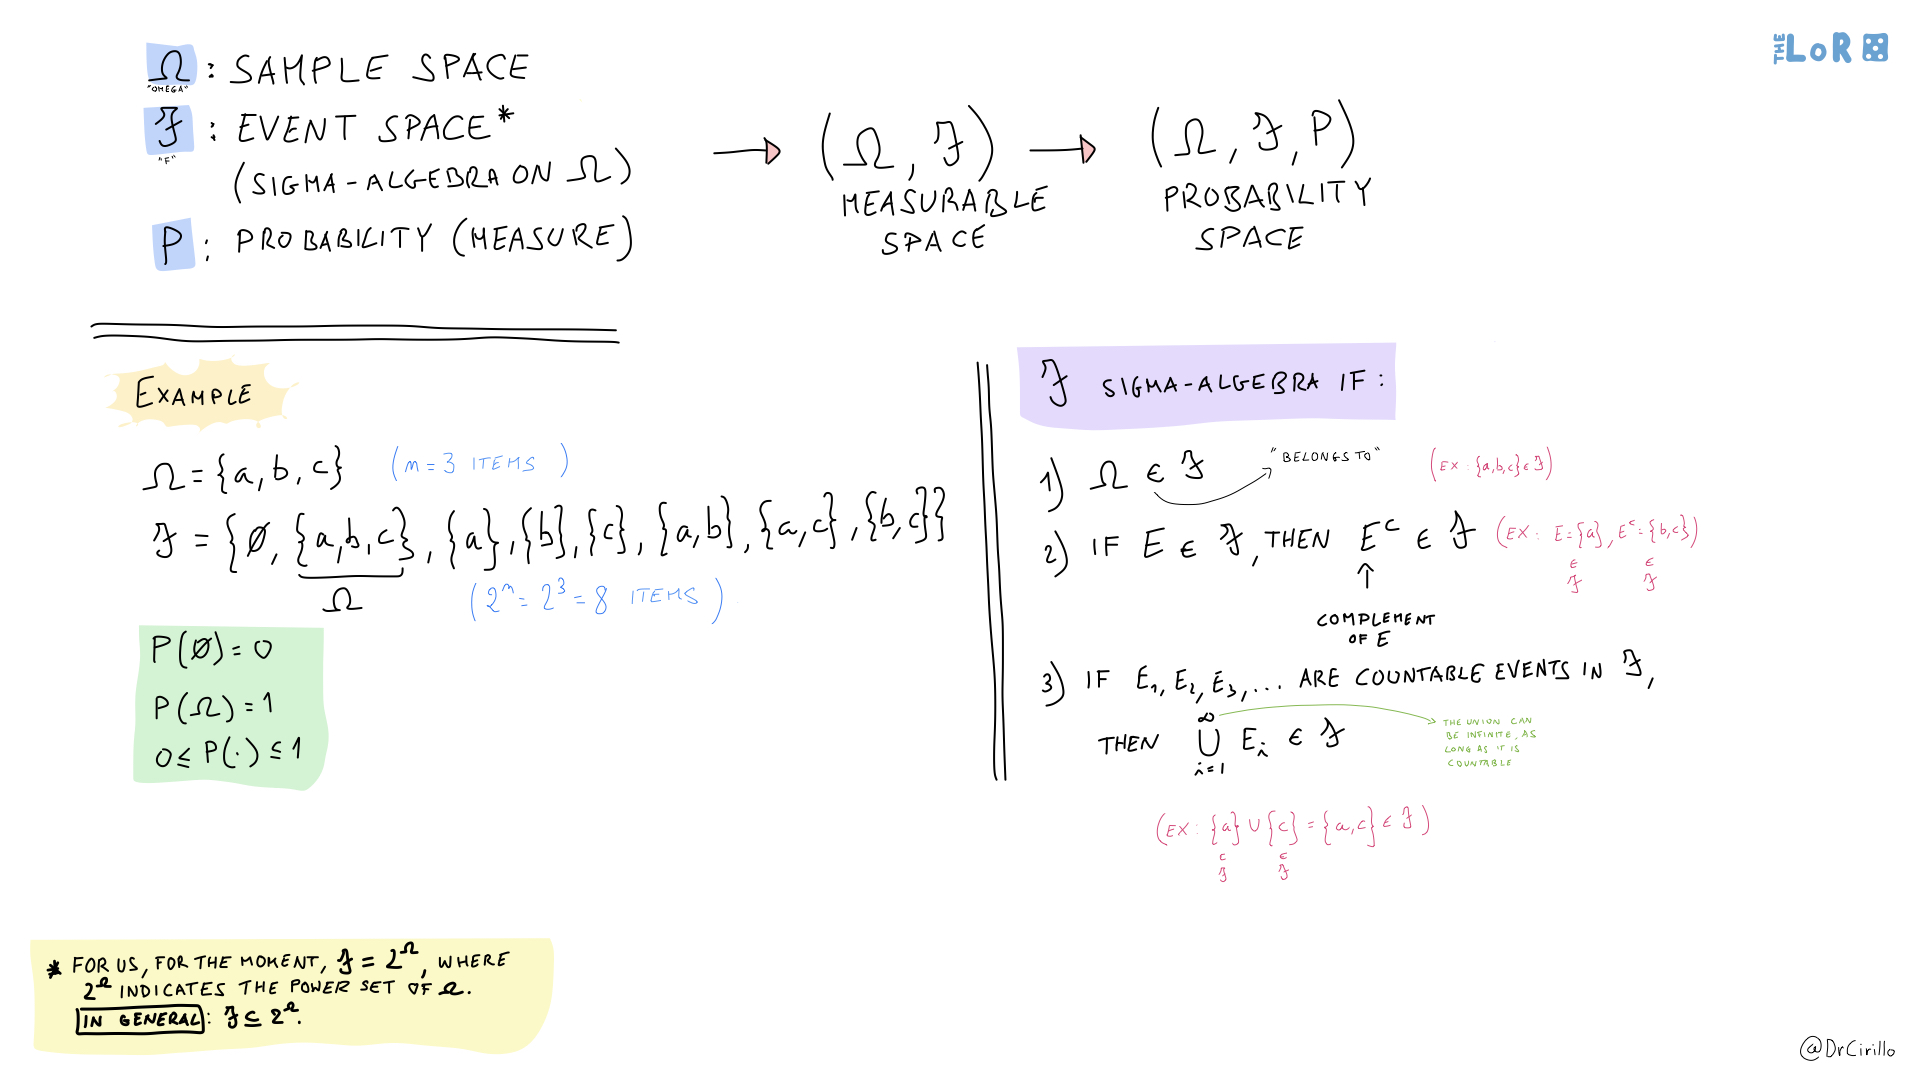 THE LoR
Ω : SAMPLE SPACE
"OMEGA"
ℱ : EVENT SPACE*
"F"
(SIGMA-ALGEBRA ON Ω)
P : PROBABILITY (MEASURE)
→ (Ω, ℱ) → (Ω, ℱ, P)
MEASURABLE SPACE
PROBABILITY SPACE
EXAMPLE
Ω = {a, b, c} (n = 3 ITEMS)
ℱ = {∅, {a,b,c}, {a}, {b}, {c}, {a,b}, {a,c}, {b,c}}
Ω
(2ⁿ = 2³ = 8 ITEMS)
P(∅) = 0
P(Ω) = 1
0 ≤ P(·) ≤ 1
ℱ SIGMA-ALGEBRA IF :
1) Ω ∈ ℱ "BELONGS TO" (EX : {a,b,c} ∈ ℱ)
2) IF E ∈ ℱ, THEN Eᶜ ∈ ℱ (EX : E = {a}, Eᶜ = {b,c})
∈ ∈
ℱ ℱ
↑
COMPLEMENT
OF E
3) IF E₁, E₂, E₃, ... ARE COUNTABLE EVENTS IN ℱ,
THEN ∞ ⋃ i=1 Eᵢ ∈ ℱ
THE UNION CAN
BE INFINITE, AS
LONG AS IT IS
COUNTABLE
(EX : {a} ∪ {c} = {a,c} ∈ ℱ)
∈ ∈
ℱ ℱ
* FOR US, FOR THE MOMENT, ℱ = 2^Ω, WHERE
2^Ω INDICATES THE POWER SET OF Ω.
IN GENERAL : ℱ ⊆ 2^Ω.
@DrCirillo